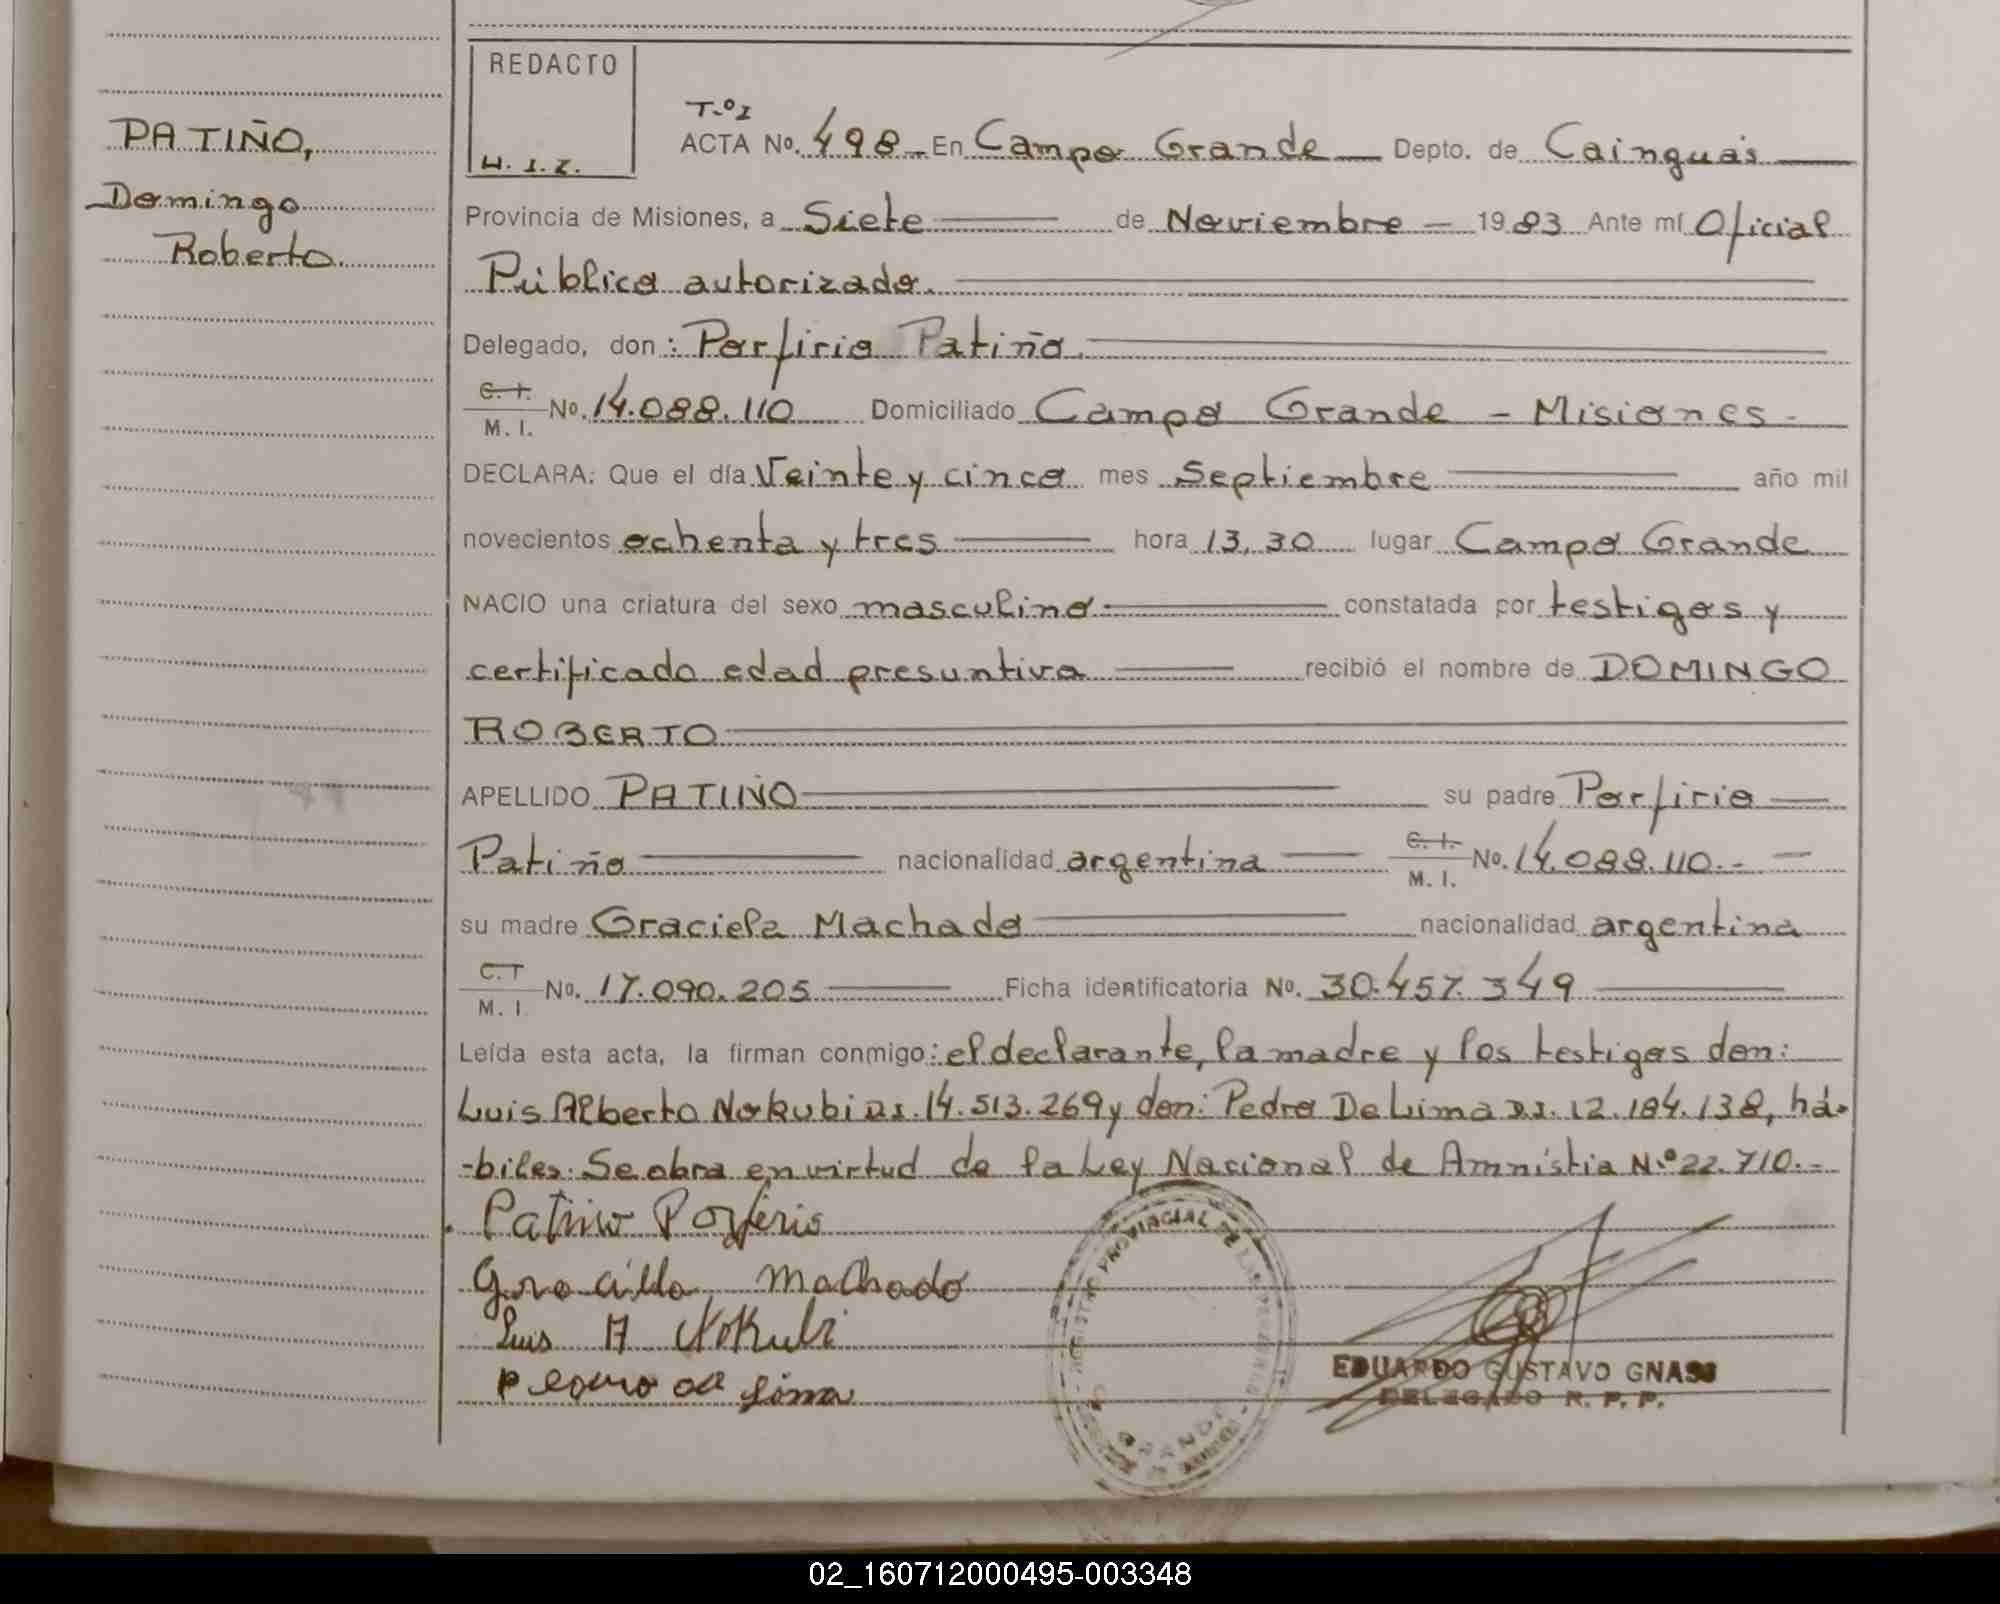 REDACTO
H. I. Z.
PATIÑO,
Domingo
Roberto.
T.º I
ACTA No. 498 En Campo Grande Depto. de Cainguás
Provincia de Misiones, a Siete de Noviembre 1983 Ante mí Oficial
Público autorizado.
Delegado, don: Porfirio Patiño.
C. I. M. I. No. 14.088.110 Domiciliado Campo Grande - Misiones -
DECLARA: Que el día Veinte y cinco mes Septiembre año mil
novecientos ochenta y tres hora 13,30 lugar Campo Grande
NACIO una criatura del sexo masculino constatada por testigos y
certificado edad presuntiva recibió el nombre de DOMINGO
ROBERTO
APELLIDO PATIÑO su padre Porfirio
Patiño nacionalidad argentina C. I. M. I. No. 14.088.110.-
su madre Graciela Machado nacionalidad argentina
C. I M. I No. 17.090.205 Ficha identificatoria No. 30.457.349
Leída esta acta, la firman conmigo: el declarante, la madre y los testigos don:
Luis Alberto Nokubi D.I. 14.513.269 y don: Pedro De Lima D.I. 12.184.138, há-
-biles. Se obra en virtud de la Ley Nacional de Amnistia N.º 22.710.-
Patiño Porferio
Graciella Machado
Luis A Nokubi
Pedro de lima
REGISTRO PROVINCIAL DE LAS PERSONAS
EDUARDO GUSTAVO GNASS
DELEGADO R. P. P.
02_160712000495-003348